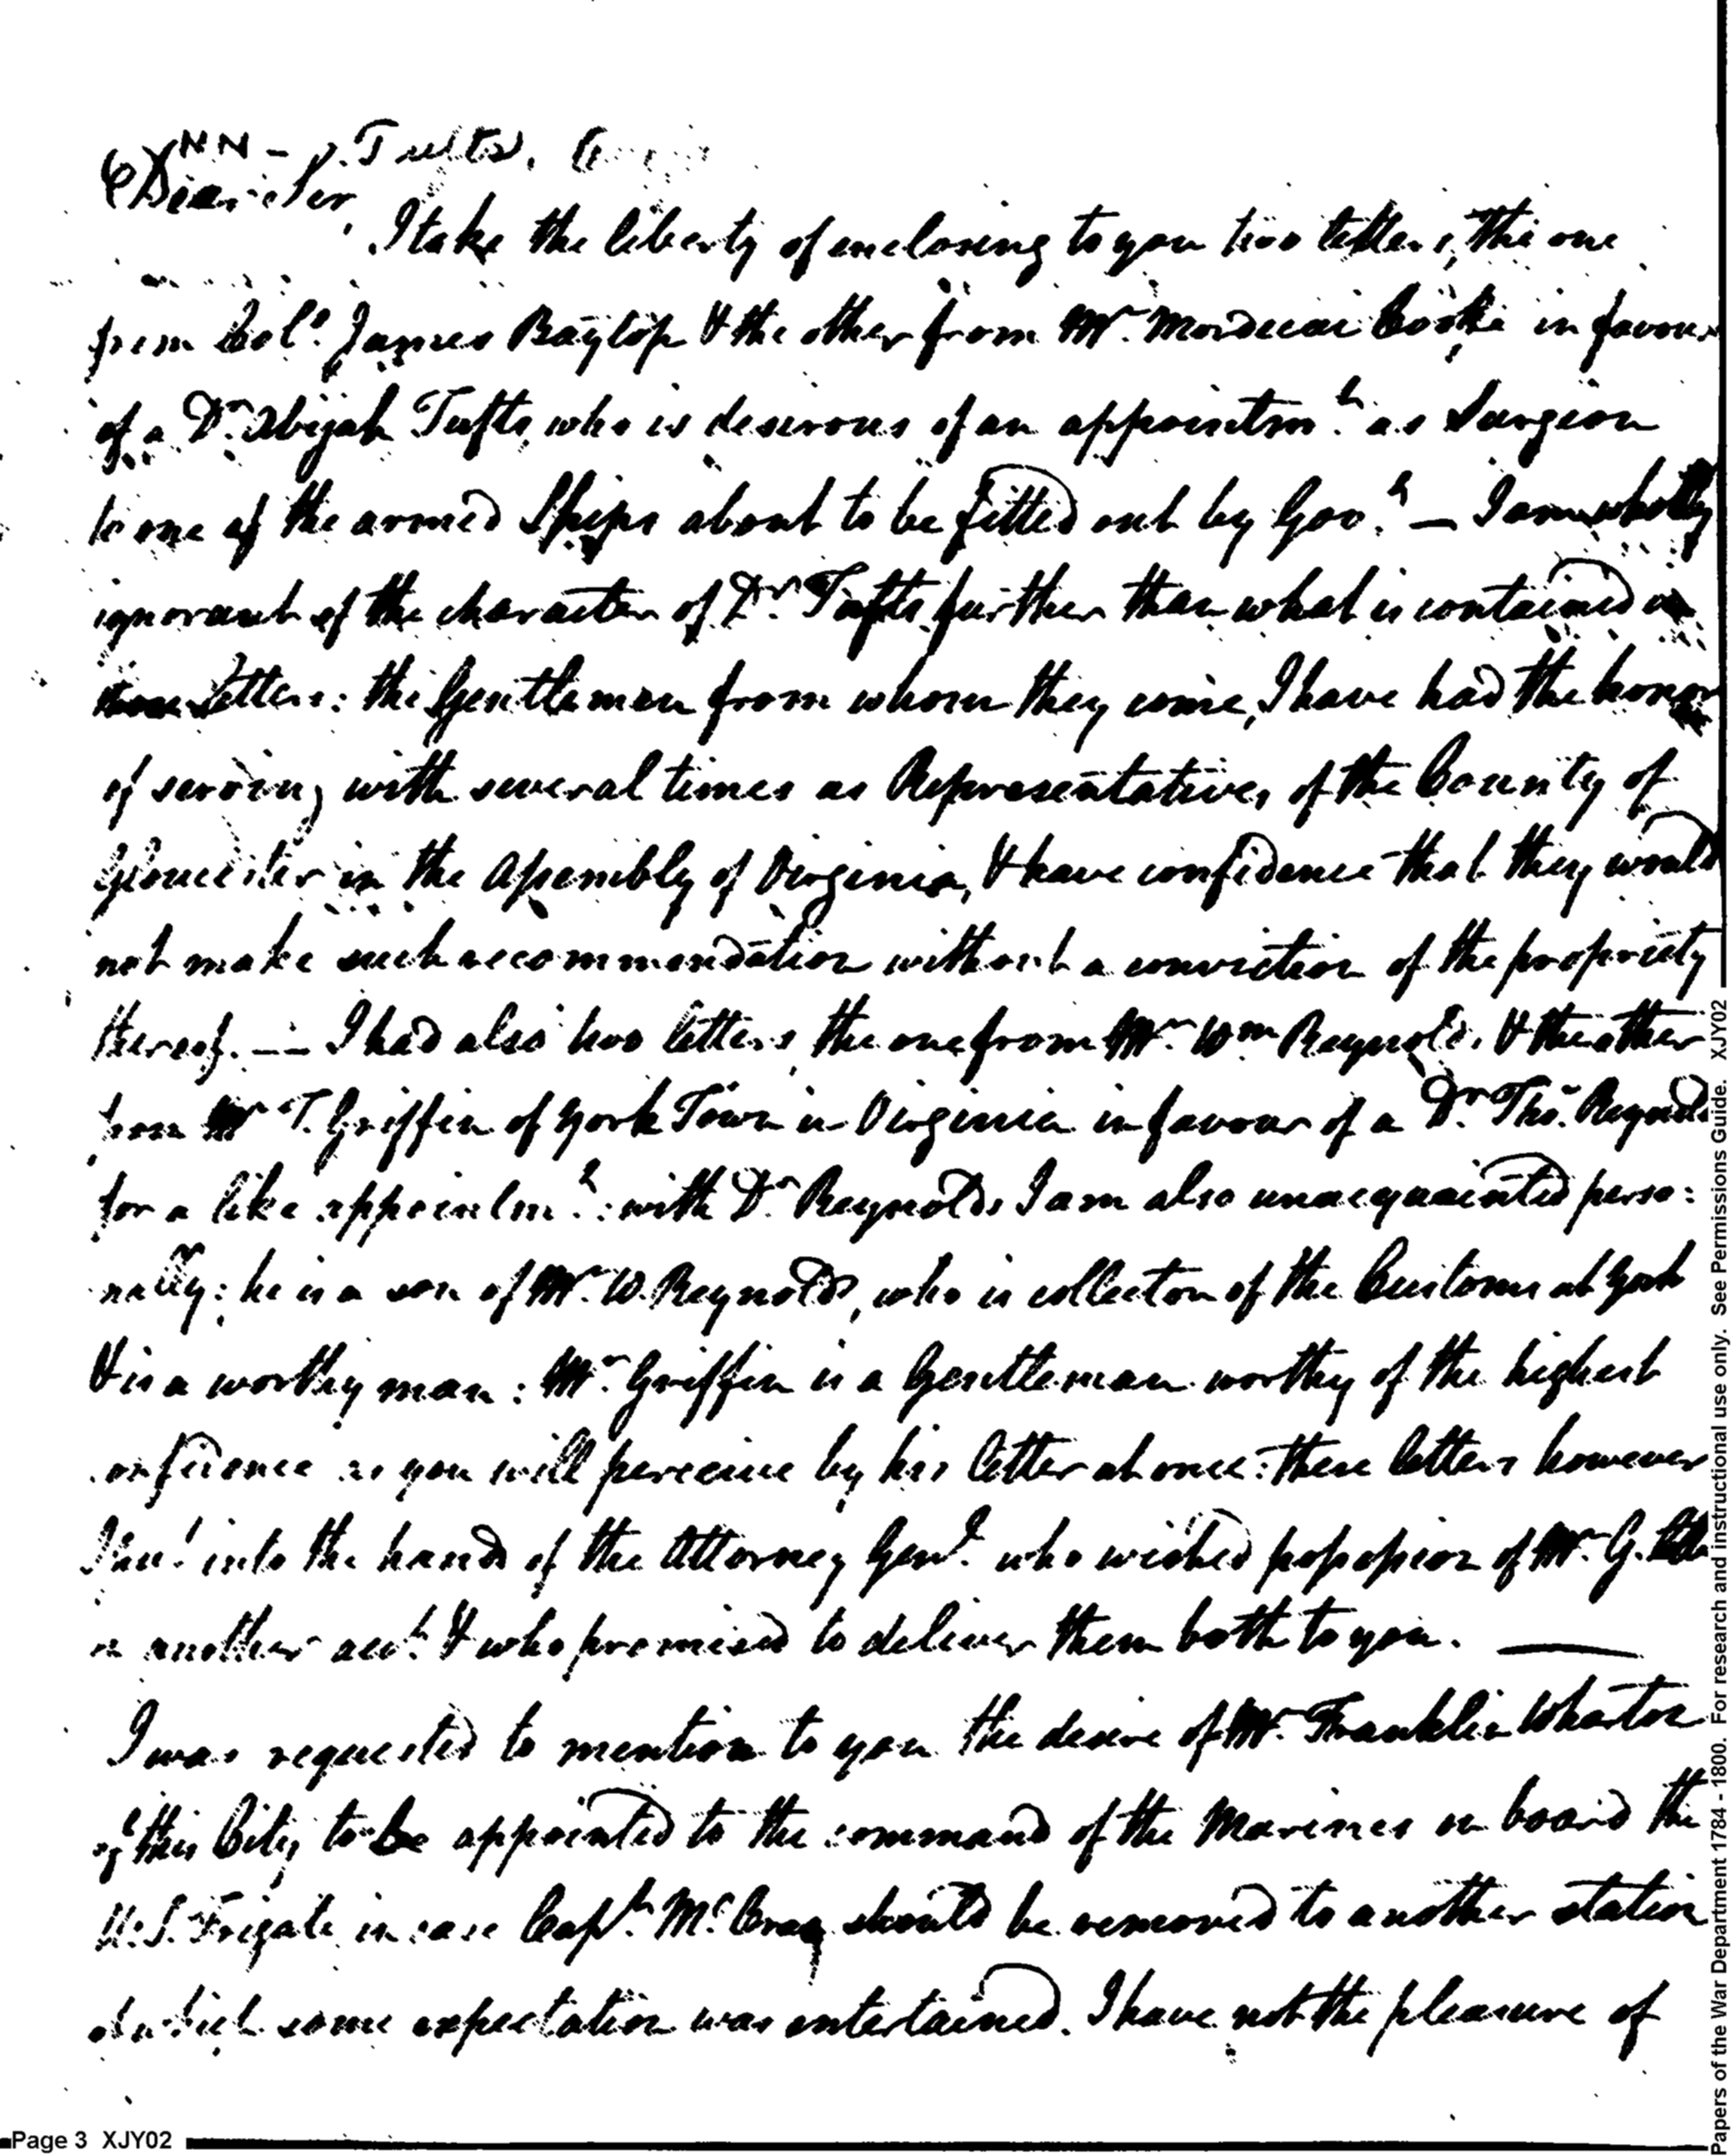 NN - Tufts,
Dear Sir,
I take the liberty of enclosing to you two letters, the one
from Colo. James Baytop & the other from Mr. Mordecai Cooke in favour
of a Dr. Abijah Tufts, who is desirous of an appointmt. as Surgeon
to one of the armed Ships about to be fitted out by Govt. — I am wholly
ignorant of the character of Dr. Tufts further than what is contained in
those Letters: the Gentlemen from whom they come, I have had the honor
of serving with several times as Representatives of the County of
Gloucester in the Assembly of Virginia, & have confidence that they would
not make such recommendation without a conviction of the propriety
thereof. — I had also two letters, the one from Mr. Wm Reynolds, & the other
from Mr T. Griffin of York Town in Virginia in favour of a Dr. Tho. Reynolds
for a like appointmt.: with Dr. Reynolds I am also unacquainted perso:
nally: he is a son of Mr. W. Reynolds, who is collector of the Customs at York
& is a worthy man: Mr. Griffin is a Gentleman worthy of the highest
confidence as you will perceive by his letter at once: these letters however
I put into the hands of the Attorney Genl. who wished possession of Mr. G.
on another acct. & who promised to deliver them both to you. —
I was requested to mention to you the desire of Mr. Franklin Wharton
of this City to be appointed to the command of the Marines on board the
U.S. Frigate in case Capt. McCrea should be removed to another station
of which some expectation was entertained. I have not the pleasure of
Page 3 XJY02
Papers of the War Department 1784 - 1800. For research and instructional use only. See Permissions Guide. XJY02